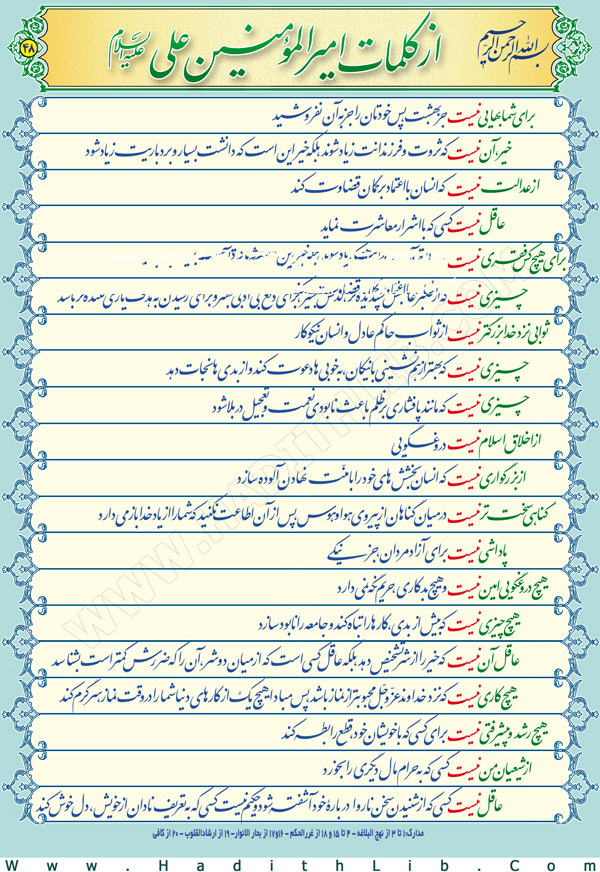 بسم الله الرحمن الرحیم
از کلمات امیرالمؤمنین علی علیه السلام
۴۸
برای شما بهایی نیست جز بهشت پس خودتان را جز به آن نفروشید
خیر آن نیست که ثروت و فرزندانت زیاد شوند بلکه خیر این است که دانشت بسیار و بردباریت زیاد شود
از عدالت نیست که انسان با اعتماد بر گمان قضاوت کند
عاقل نیست کسی که با اشرار معاشرت نماید
برای هیچ کس فقری نیست
چیزی نیست
ثوابی نزد خدا بزرگتر نیست از ثواب حاکم عادل و انسان نیکوکار
چیزی نیست که بهتر از همنشینی با نیکان، به خوبی ها دعوت کند و از بدی ها نجات دهد
چیزی نیست که مانند پافشاری بر ظلم باعث نابودی نعمت و تعجیل در بلا شود
از اخلاق اسلام نیست دروغگویی
از بزرگواری نیست که انسان بخشش های خود را با منّت نهادن آلوده سازد
گناهی سخت تر نیست در میان گناهان از پیروی هوا و هوس پس از آن اطاعت نکنید که شما را از یاد خدا باز می دارد
پاداشی نیست برای آزاد مردان جز نیکی
هیچ دروغگویی امین نیست و هیچ بدکاری، حریم نگه نمی دارد
هیچ چیزی نیست که بیش از بدی، کارها را تباه کند و جامعه را نابود سازد
عاقل آن نیست که خیر را از شر تشخیص دهد بلکه عاقل کسی است که از میان دو شر، آن را که ضررش کمتر است بشناسد
هیچ کاری نیست که نزد خداوند عزّ و جلّ محبوبتر از نماز باشد پس مبادا هیچ یک از کارهای دنیا شما را در وقت نماز سرگرم کند
هیچ رشد و پیشرفتی نیست برای کسی که با خویشان خود، قطع رابطه کند
از شیعیان من نیست کسی که به حرام مال دیگری را بخورد
عاقل نیست کسی که از شنیدن سخن ناروا درباره خود آشفته شود و حکیم نیست کسی که به تعریف نادان از خویش، دل خوش کند
مدارک: ۱ تا ۳ از نهج البلاغه - ۴ تا ۱۵ و ۱۸ از غررالحکم - ۱۶و۱۷ از بحار الانوار - ۱۹ از ارشادالقلوب - ۲۰ از کافی
www.HadithLib.Com